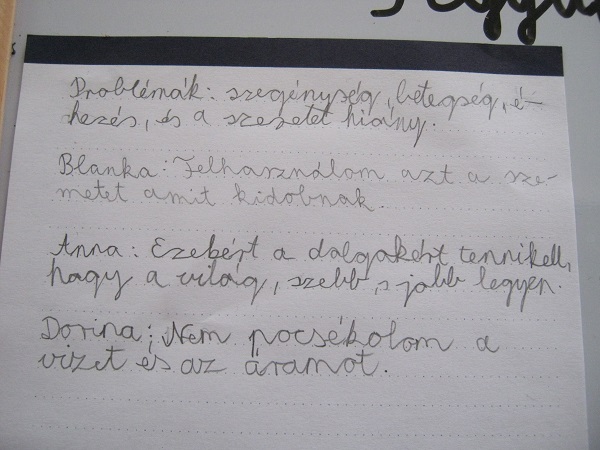 Problémák: szegénység, betegség, é-
hezés, és a szeretet hiány.
Blanka: Felhasználom azt a sze-
metet amit kidobnak.
Anna: Ezekért a dolgakért tennikell,
hagy a világ, szebb, s jobb legyen.
Dorina: Nem pocsékolom a
vizet és az áramot.